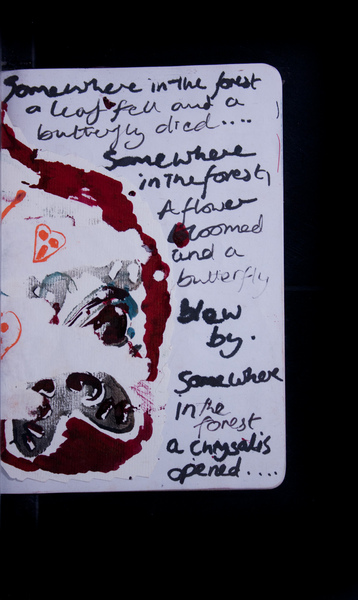 Somewhere in the forest
a leaf fell and a
butterfly died....
Somewhere
in the forest,
A flower
bloomed
and a
butterfly
blew
by.
Somewhere
in the
forest
a chrysalis
opened....